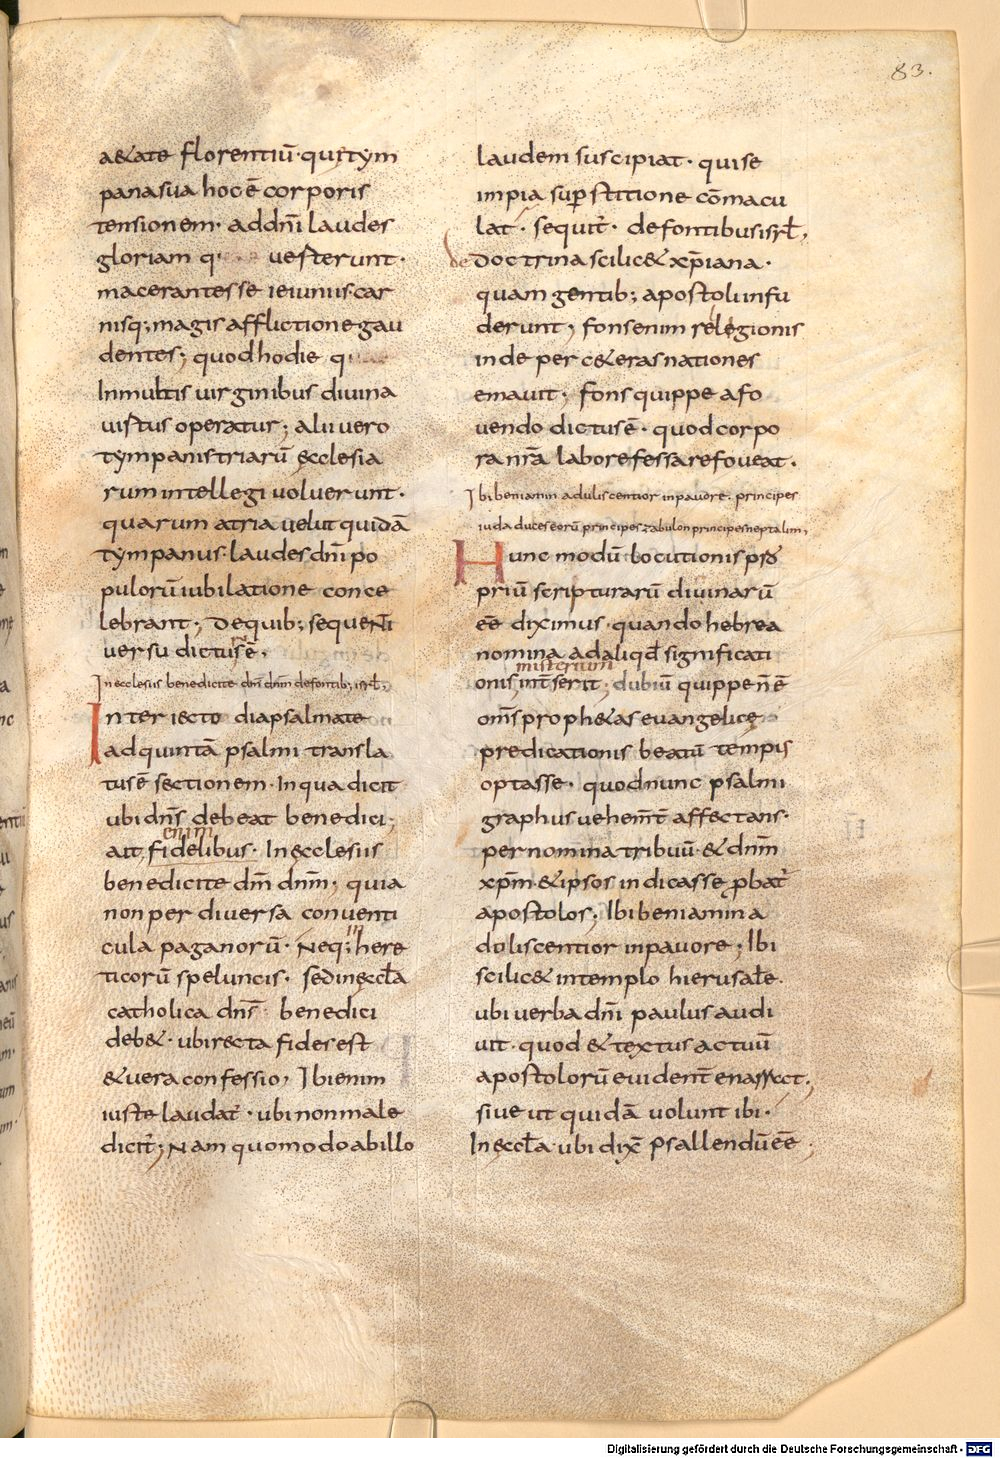 83.
a&ate florentiū· qui tym
pana sua hoc ē corporis
tensionem· ad dn̄i laudes
gloriam q· uesterunt·
macerantes se ieiuniis car
nisq; magis afflictione gau
dentes; quod hodie q·
In multis uirginibus diuina
uistus operatur; alii uero
tympanistriarū ęcclesia
rum intellegi uoluerunt·
quarum atria uelut quidā
tympanus· laudes dn̄i po
pulorū iubilatione conce
lebrant; De quib; sequenti
uersu dictus ē·
In ecclesiis benedicite dm̄ dnm̄ de fontib; isrl̄·
Interiecto diapsalmate
ad quintā psalmi transla
tus ē sectionem· In qua dicit
ubi dn̄s debeat benedici;
enim
ait fidelibus· In ęcclesiis
benedicite dm̄ dnm̄; quia
non per diuersa conuenti
cula paganorū· Neq; in here
ticorū speluncis· sed in ęccl̄a
catholica dn̄s benedici
deb&· ubi recta fides est
& uera confessio, Ibi enim
iuste laudat̄· ubi non male
dicit̄; Nam quomodo ab illo
laudem suscipiat· qui se
impia sup̄stitione cōmacu
lat· sequit̄· de fontibus isrl̄,
de doctrina scilic& xp̄iana·
quam gentib; apostoli infu
derunt, fons enim relegionis
inde per c&eras nationes
emauit· fons quippe a fo
uendo dictus ē· quod corpo
ra nr̄a labore fessa refoueat·
Ibi beniamin aduliscentior in pauore· principes
iuda duces eorū principes zabulon principes neptalim,
Hunc modū locutionis pro
priū scripturarū diuinarū
eē diximus· quando hebrea
nomina ad aliqd̄ significati
misterium
onis int̄serit; dubiū quippe n̄ ē
om̄s proph&as euangelice
predicationis beatū tempis
optasse· quod nunc psalmi
graphus uehem̄t̄ affectans·
per nomina tribuū· & dnm̄
xp̄m· & ipsos indicasse p̄bat̄
apostolos; Ibi beniamin a
duliscentior in pauore; Ibi
scilic& in templo hierusal̄e·
ubi uerba dn̄i paulus audi
uit· quod & textus actuū
apostolorū euident̄ enarrat;
siue ut quidā uolunt ibi·
In ęccl̄a· ubi dix̄ psallendū eē;
Digitalisierung gefördert durch die Deutsche Forschungsgemeinschaft - DFG